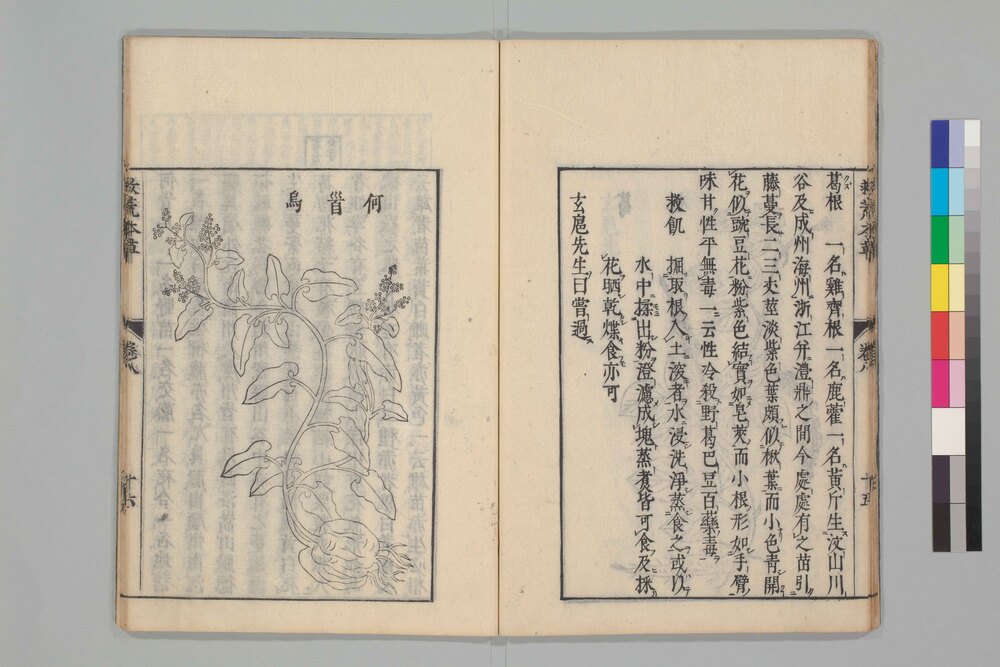 葛根 一名雞齊根一名鹿藿一名黃斤生汶山川
谷及成州海州浙江并澧鼎之間今處處有之苗引
藤蔓長二三丈莖淡紫色葉頗似楸葉而小色青開
花似豌豆花粉紫色結實如皂莢而小根形如手臂
味甘性平無毒一云性冷殺野葛巴豆百藥毒
救飢 掘取根入土深者水浸洗淨蒸食之或以
水中揉出粉澄濾成塊蒸煮皆可食及採
花晒乾煠食亦可
玄扈先生曰嘗過
救荒本草
卷八
十五
何首烏
救荒本草
卷八
十六